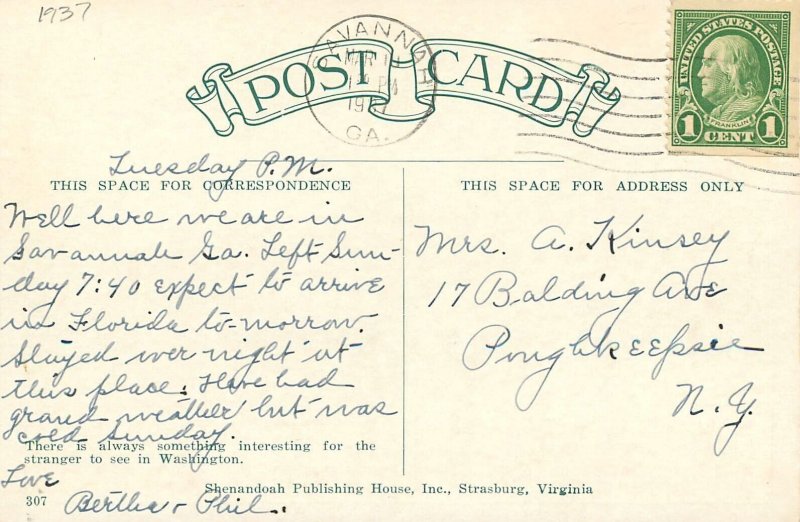 1937
SAVANNAH
MAR
PM
GA.
POST CARD
UNITED STATES POSTAGE
FRANKLIN
1 CENT 1
Tuesday P.M.
THIS SPACE FOR CORRESPONDENCE
THIS SPACE FOR ADDRESS ONLY
Well here we are in
Savannah Ga. Left Sun-
day 7:40 expect to arrive
in Florida to-morrow.
Stayed over night at
this place. Have had
grand weather but was
cold Sunday.
There is always something interesting for the
stranger to see in Washington.
Love
Bertha + Phil.
Mrs. A. Kinsey
17 Balding Ave
Poughkeepsie
N.Y.
Shenandoah Publishing House, Inc., Strasburg, Virginia
307